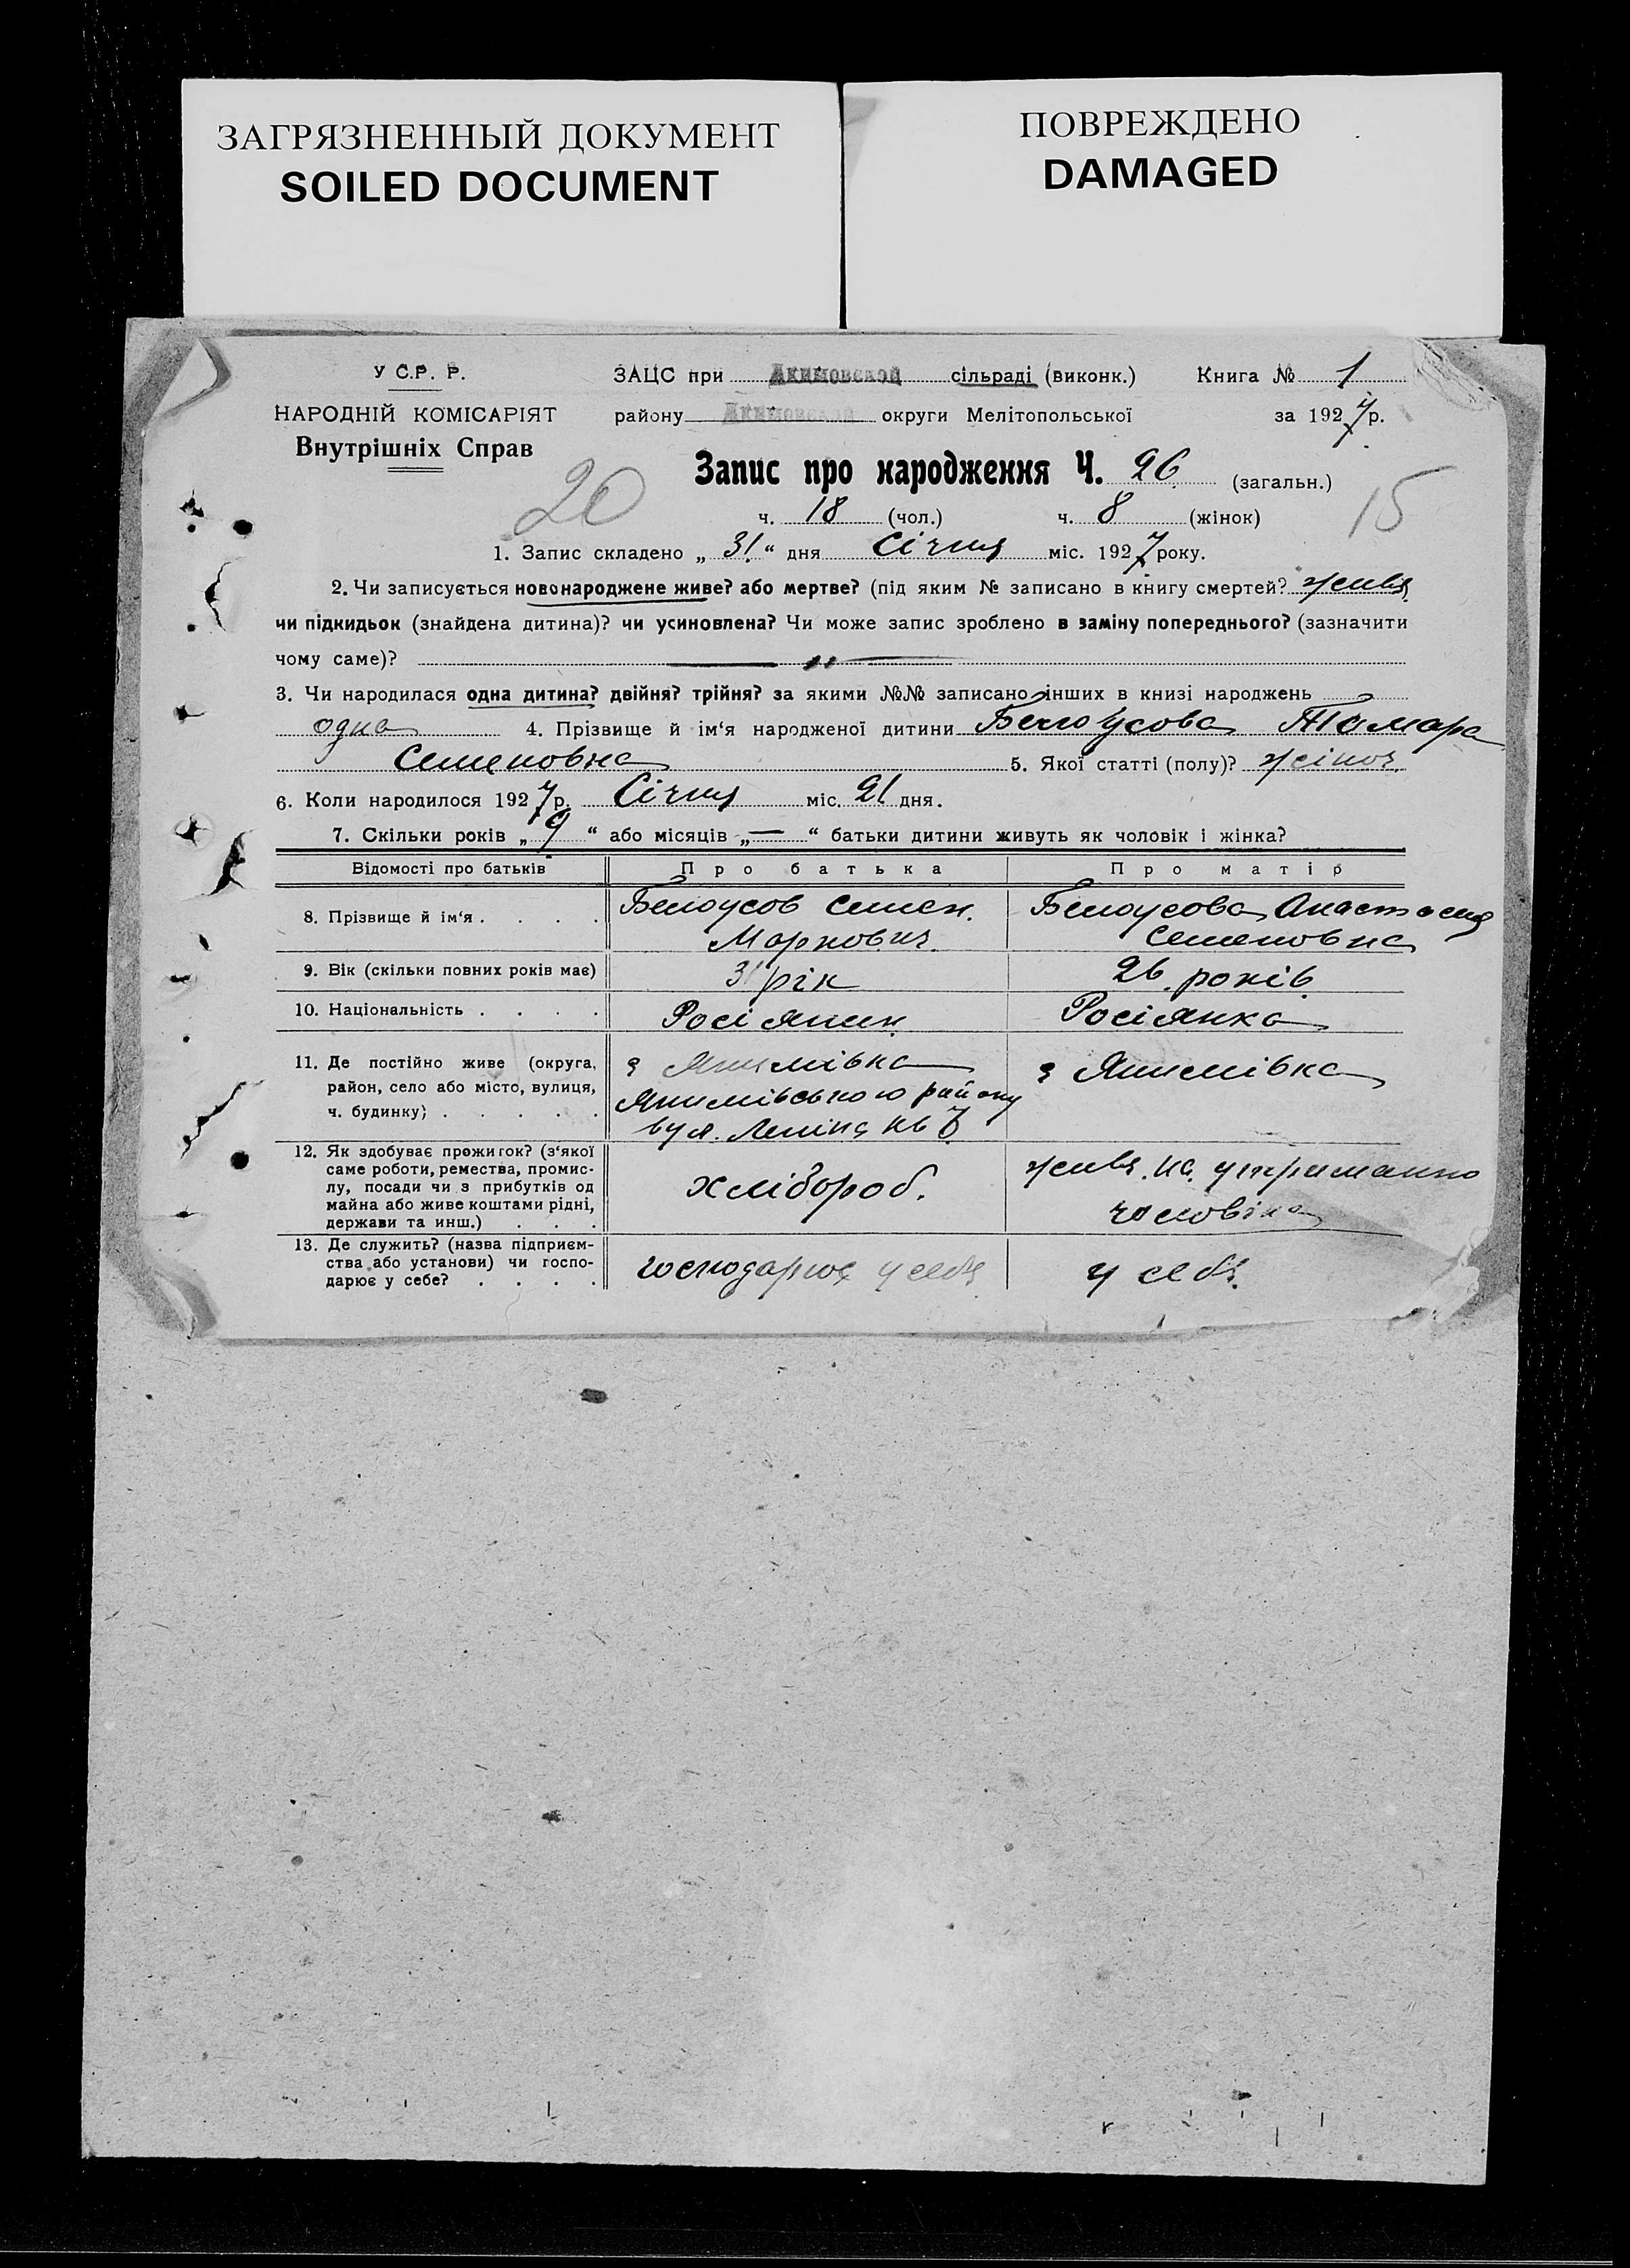 ЗАГРЯЗНЕННЫЙ ДОКУМЕНТ
SOILED DOCUMENT
ПОВРЕЖДЕНО
DAMAGED
У С.Р. Р.
НАРОДНІЙ КОМІСАРІЯТ
Внутрішніх Справ
ЗАЦС при Акимовской сільраді (виконк.) Книга № 1
району Акимовской округи Мелітопольської за 1927 р.
Запис про народження Ч. 26 (загальн.)
20
15
ч. 18 (чол.) ч. 8 (жінок)
1. Запис складено „ 31 “ дня Січня міс. 1927 року.
2. Чи записується новонароджене живе? або мертве? (під яким № записано в книгу смертей? живе
чи підкидьок (знайдена дитина)? чи усиновлена? Чи може запис зроблено в заміну попереднього? (зазначити
чому саме)? — „ —
3. Чи народилася одна дитина? двійня? трійня? за якими №№ записано інших в книзі народжень
одна 4. Прізвище й ім‘я народженої дитини Белоусова Тамара
Семеновна 5. Якої статті (полу)? жіноч.
6. Коли народилося 1927 р. Січня міс. 21 дня.
7. Скільки років „ 9 “ або місяців „ — “ батьки дитини живуть як чоловік і жінка?
Відомості про батьків Про батька Про матір
8. Прізвище й ім‘я . . . . Белоусов Семен Белоусова Анастасия
Маркович Семеновна
9. Вік (скільки повних років має) 31 рік 26 років
10. Національність . . . . Росіянин Росіянка
11. Де постійно живе (округа,
район, село або місто, вулиця,
ч. будинку) . . . . .
з Якимівка
Якимівського району
вул. Леніна кв 7
з Якимівка
12. Як здобуває прожиток? (з‘якої
саме роботи, ремества, промис-
лу, посади чи з прибутків од
майна або живе коштами рідні,
держави та инш.) . . .
хлібороб.
живе на утриманню
чоловіка
13. Де служить? (назва підприєм-
ства або установи) чи госпо-
дарює у себе? . . . .
господарює у себе
у себе